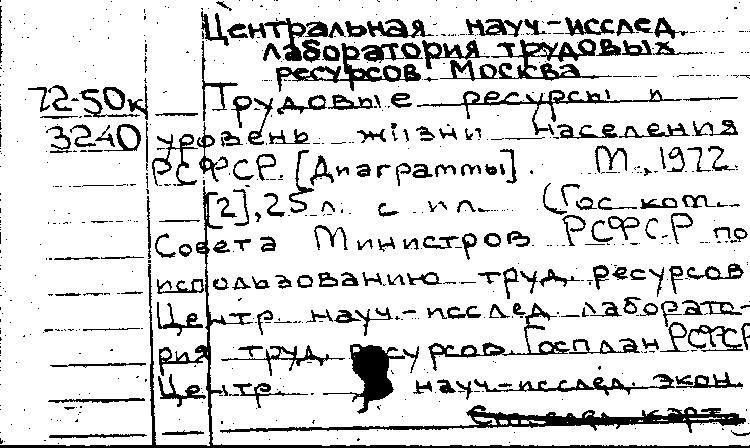 Центральная науч.-исслед.
лаборатория трудовых
ресурсов. Москва
72-50к Трудовые ресурсы и
3240 уровень жизни населения
РСФСР. [Диаграммы]. М., 1972.
[2], 25 л. с ил. (Гос. ком.
Совета Министров РСФСР по
использованию труд. ресурсов
Центр. науч.-исслед. лаборато-
рия труд. ресурсов. Госплан РСФСР
Центр. науч.-исслед. экон.
См. след. карт.